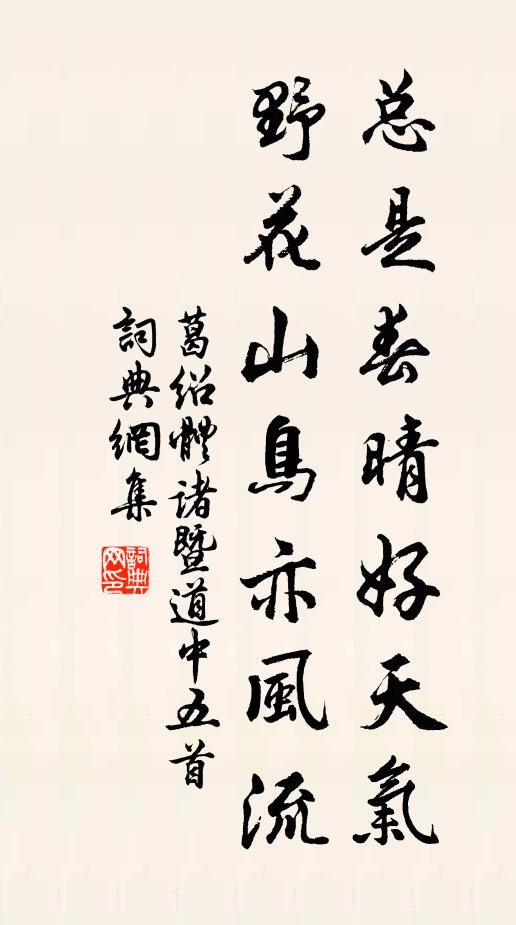 总是春晴好天氣
野花山鳥亦風流
葛绍體諸暨道中五首
詞典網集
詞典网印